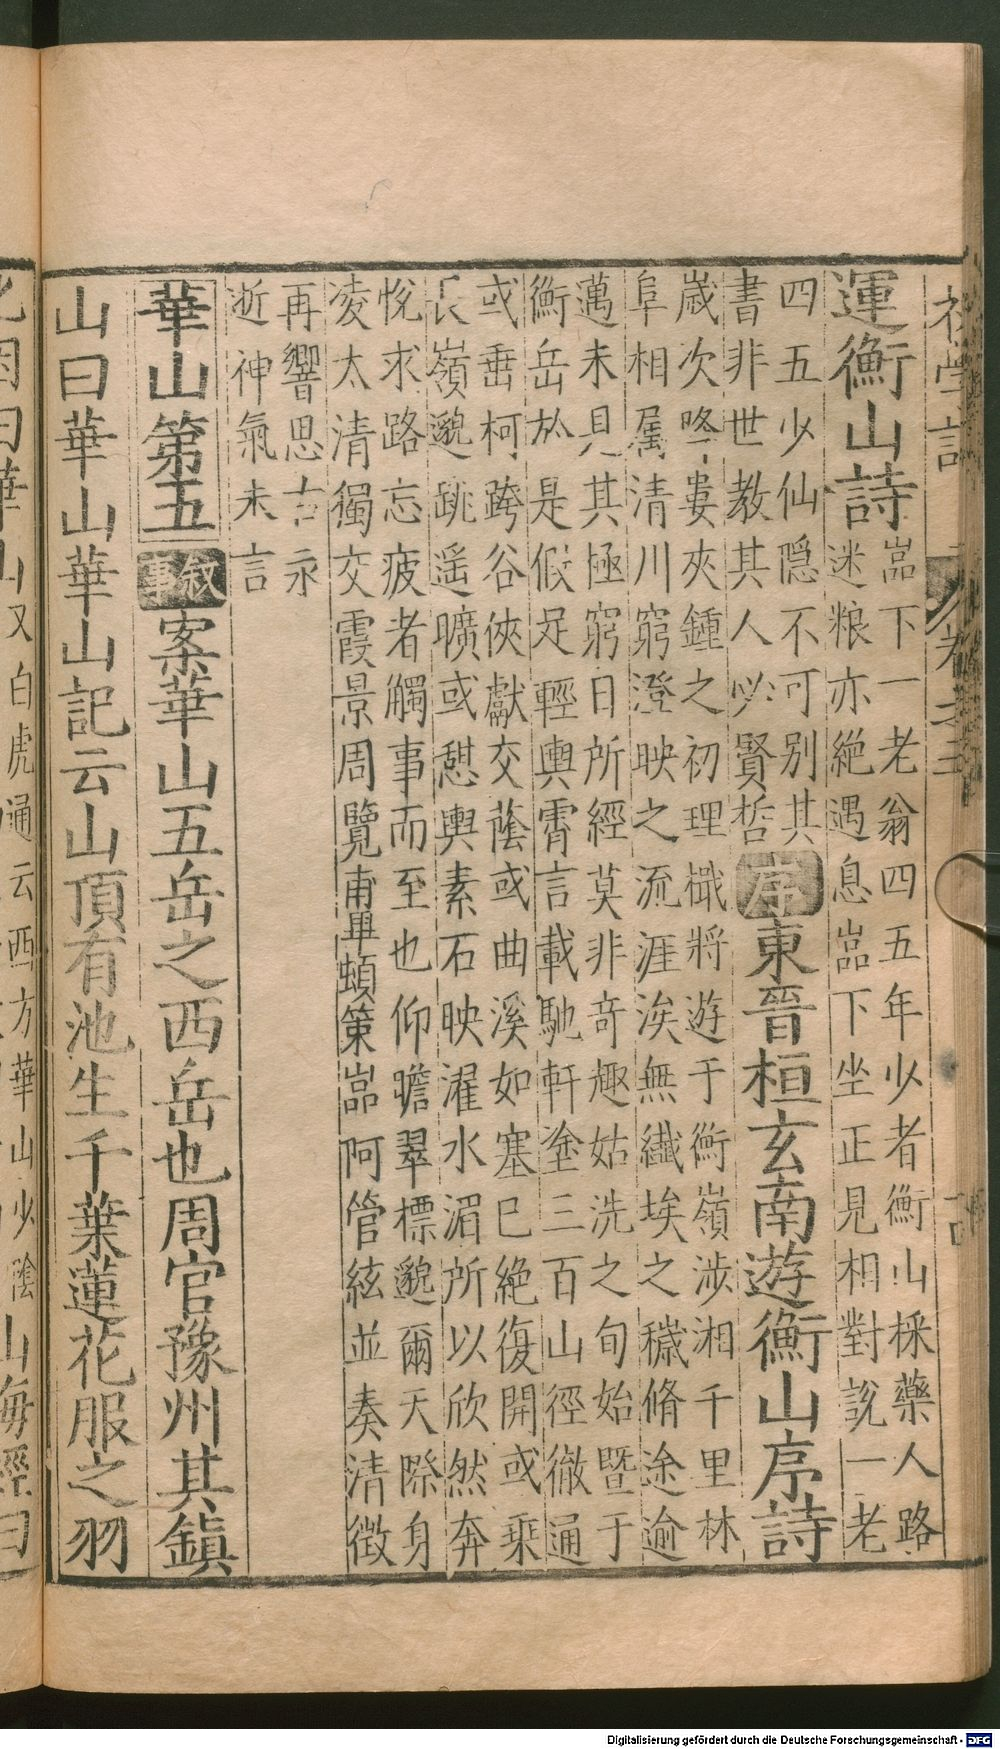 初學記 卷之五
運衡山詩
嵓下一老翁四五年少者衡山採藥人路
迷粮亦絶遇息嵓下坐正見相對說一老
四五少仙隠不可别其
書非世教其人必賢哲
序
東晉桓玄南遊衡山序詩
歲次降婁夾鍾之初理檝將遊于衡嶺涉湘千里林
阜相属清川窮澄映之流涯涘無纎埃之穢脩途逾
萬未見其極窮日所經莫非奇趣姑洗之旬始暨于
衡岳於是假足輕輿宵言載馳軒塗三百山徑徹通
或垂柯跨谷俠巘交蔭或曲溪如塞巳絶復開或乗
長嶺邈眺遥曠或憩輿素石映濯水湄所以欣然奔
悅求路忘疲者觸事而至也仰瞻翠標邈爾天際身
凌太清獨交霞景周覽甫畢頓策嵓阿管絃並奏清徴
再響思古永
逝神氣未言
華山第五
叙事
案華山五岳之西岳也周官豫州其鎮
山曰華山華山記云山頂有池生千葉蓮花服之羽
又白虎通云西方華山少陰
山海經曰
Digitalisierung gefördert durch die Deutsche Forschungsgemeinschaft - DFG